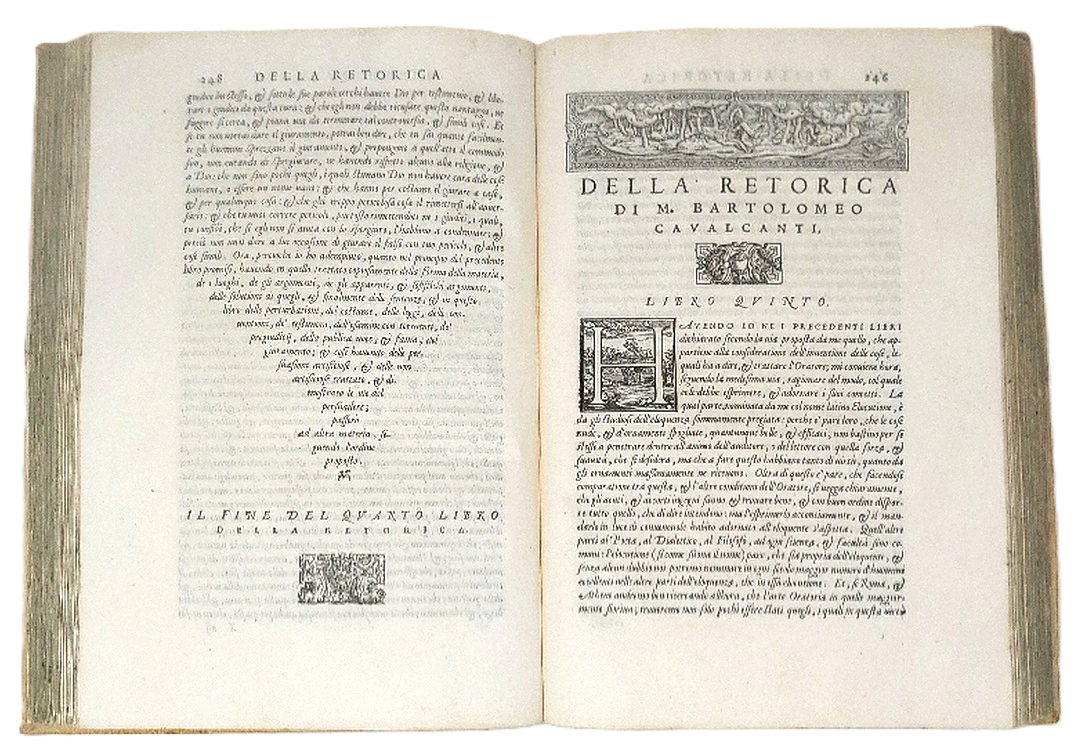 248 DELLA RETORICA
giudice his stesso, & sattole sue parole occhi havere Dio per testimonio, & libe-
rare i giudici da questa cura; & che egli non debbe ricusare questo vantaggio, ne
fuggire sicerca, & piana via da terminare tal controversia, & simili cose. Et
se tu non vorrai dare il giuramento, potrai ben dire, che tu sai quanto facilmen-
te gli huomini sprezzano il giuramento, & prepongono a quell'atto il commodo
suo, non curando di spergiurare, ne havendo rispetto alcuno alla religione, &
a Dio: che non sono pochi quegli, i quali stimano Dio non havere cura delle cose
humane, o essere un nome vano; & che hanno per costume il giurare a caso,
& per qualunque cosa: & che gli è troppo pericolosa cosa il rimettersi all'aver-
sario: & che tu vuoi correre pericolo, più tosto rimettendoti ne i giudici, i quali,
tu confidi, che se egli non si aiuta con lo spergiuro, l'habbino a condennare; &
perciò non vuoi dare a lui occasione di giurare il falso con tuo pericolo, & altre
cose simili. Ora, perciochè io ho adempiuto, quanto nel principio del precedente
libro promisi, havendo in quello trattato copiosamente della forma della materia,
de i luoghi, de gli argomenti, ne gli apparenti, & sofistichi argomenti,
delle solutioni di quegli, & finalmente delle sentenze, & in questo
libro delle perturbationi, de' costumi, delle leggi, delle con-
ventioni, de' testimoni, dell'esamine con tormento, de'
pregiudicij, della publica voce, & fama, del
giuramento; & così havendo delle per-
suasioni artificiose, & delle non
artificiose trattato, & di-
mostrato le vie del
persuadere;
passerò
ad altra materia, se-
guendo l'ordine
proposto.
IL FINE DEL QVARTO LIBRO
DELLA RETORICA.
246
DELLA RETORICA
DI M. BARTOLOMEO
CAVALCANTI,
LIBRO QVINTO.
HAVENDO IO NE I PRECEDENTI LIBRI
dichiarato secondo la via proposta da me quello, che ap-
partiene alla consideratione dell'inventione delle cose, le
quali ha a dire, & trattare l'Oratore; mi conviene hora,
seguendo la medesima via, ragionare del modo, col quale
ei le debbe esprimere, & adornare i suoi concetti. La
qual parte, nominata da me col nome latino Elocutione, è
da gli studiosi dell'eloquenza sommamente pregiata: perche e' pare loro, che le cose
nude, & d'ornamenti spogliate, quantunque belle, & efficaci, non bastino per se
stesse a penetrare dentro all'animo dell'auditore, o del lettore con quella forza, &
soavità, che si desidera, ma che a fare questo habbiano tanto di virtù, quanto da
gli ornamenti massimamente ne ricevono. Oltra di questo e' pare, che facendosi
comparatione tra questa, & l'altre conditioni dell'Oratore, si vegga chiaramente,
che gli acuti, & accorti ingegni sanno & trovare bene, & con buon ordine dispor-
re tutto quello, che di dire intendono: ma l'esprimerlo acconciamente, & il man-
darlo in luce di convenevole habito adornato all'eloquente s'aspetta. Quell'altre
parti al Poeta, al Dialettico, al Filosofo, ad ogni scienza, & facultà sono co-
muni: l'elocutione (si come suona il nome) pare, che sia propria dell'eloquente, &
senza alcun dubbio noi potremo nominare in ogni secolo maggior numero d'huomini
eccellenti nelle altre parti dell'eloquenza, che in essa elocutione. Et, se Roma, &
Athene andremo ben ricercando allhora, che l'arte Oratoria in quelle maggior-
mente fioriva; troveremo non solo pochi essere stati quegli, i quali in questa virtù